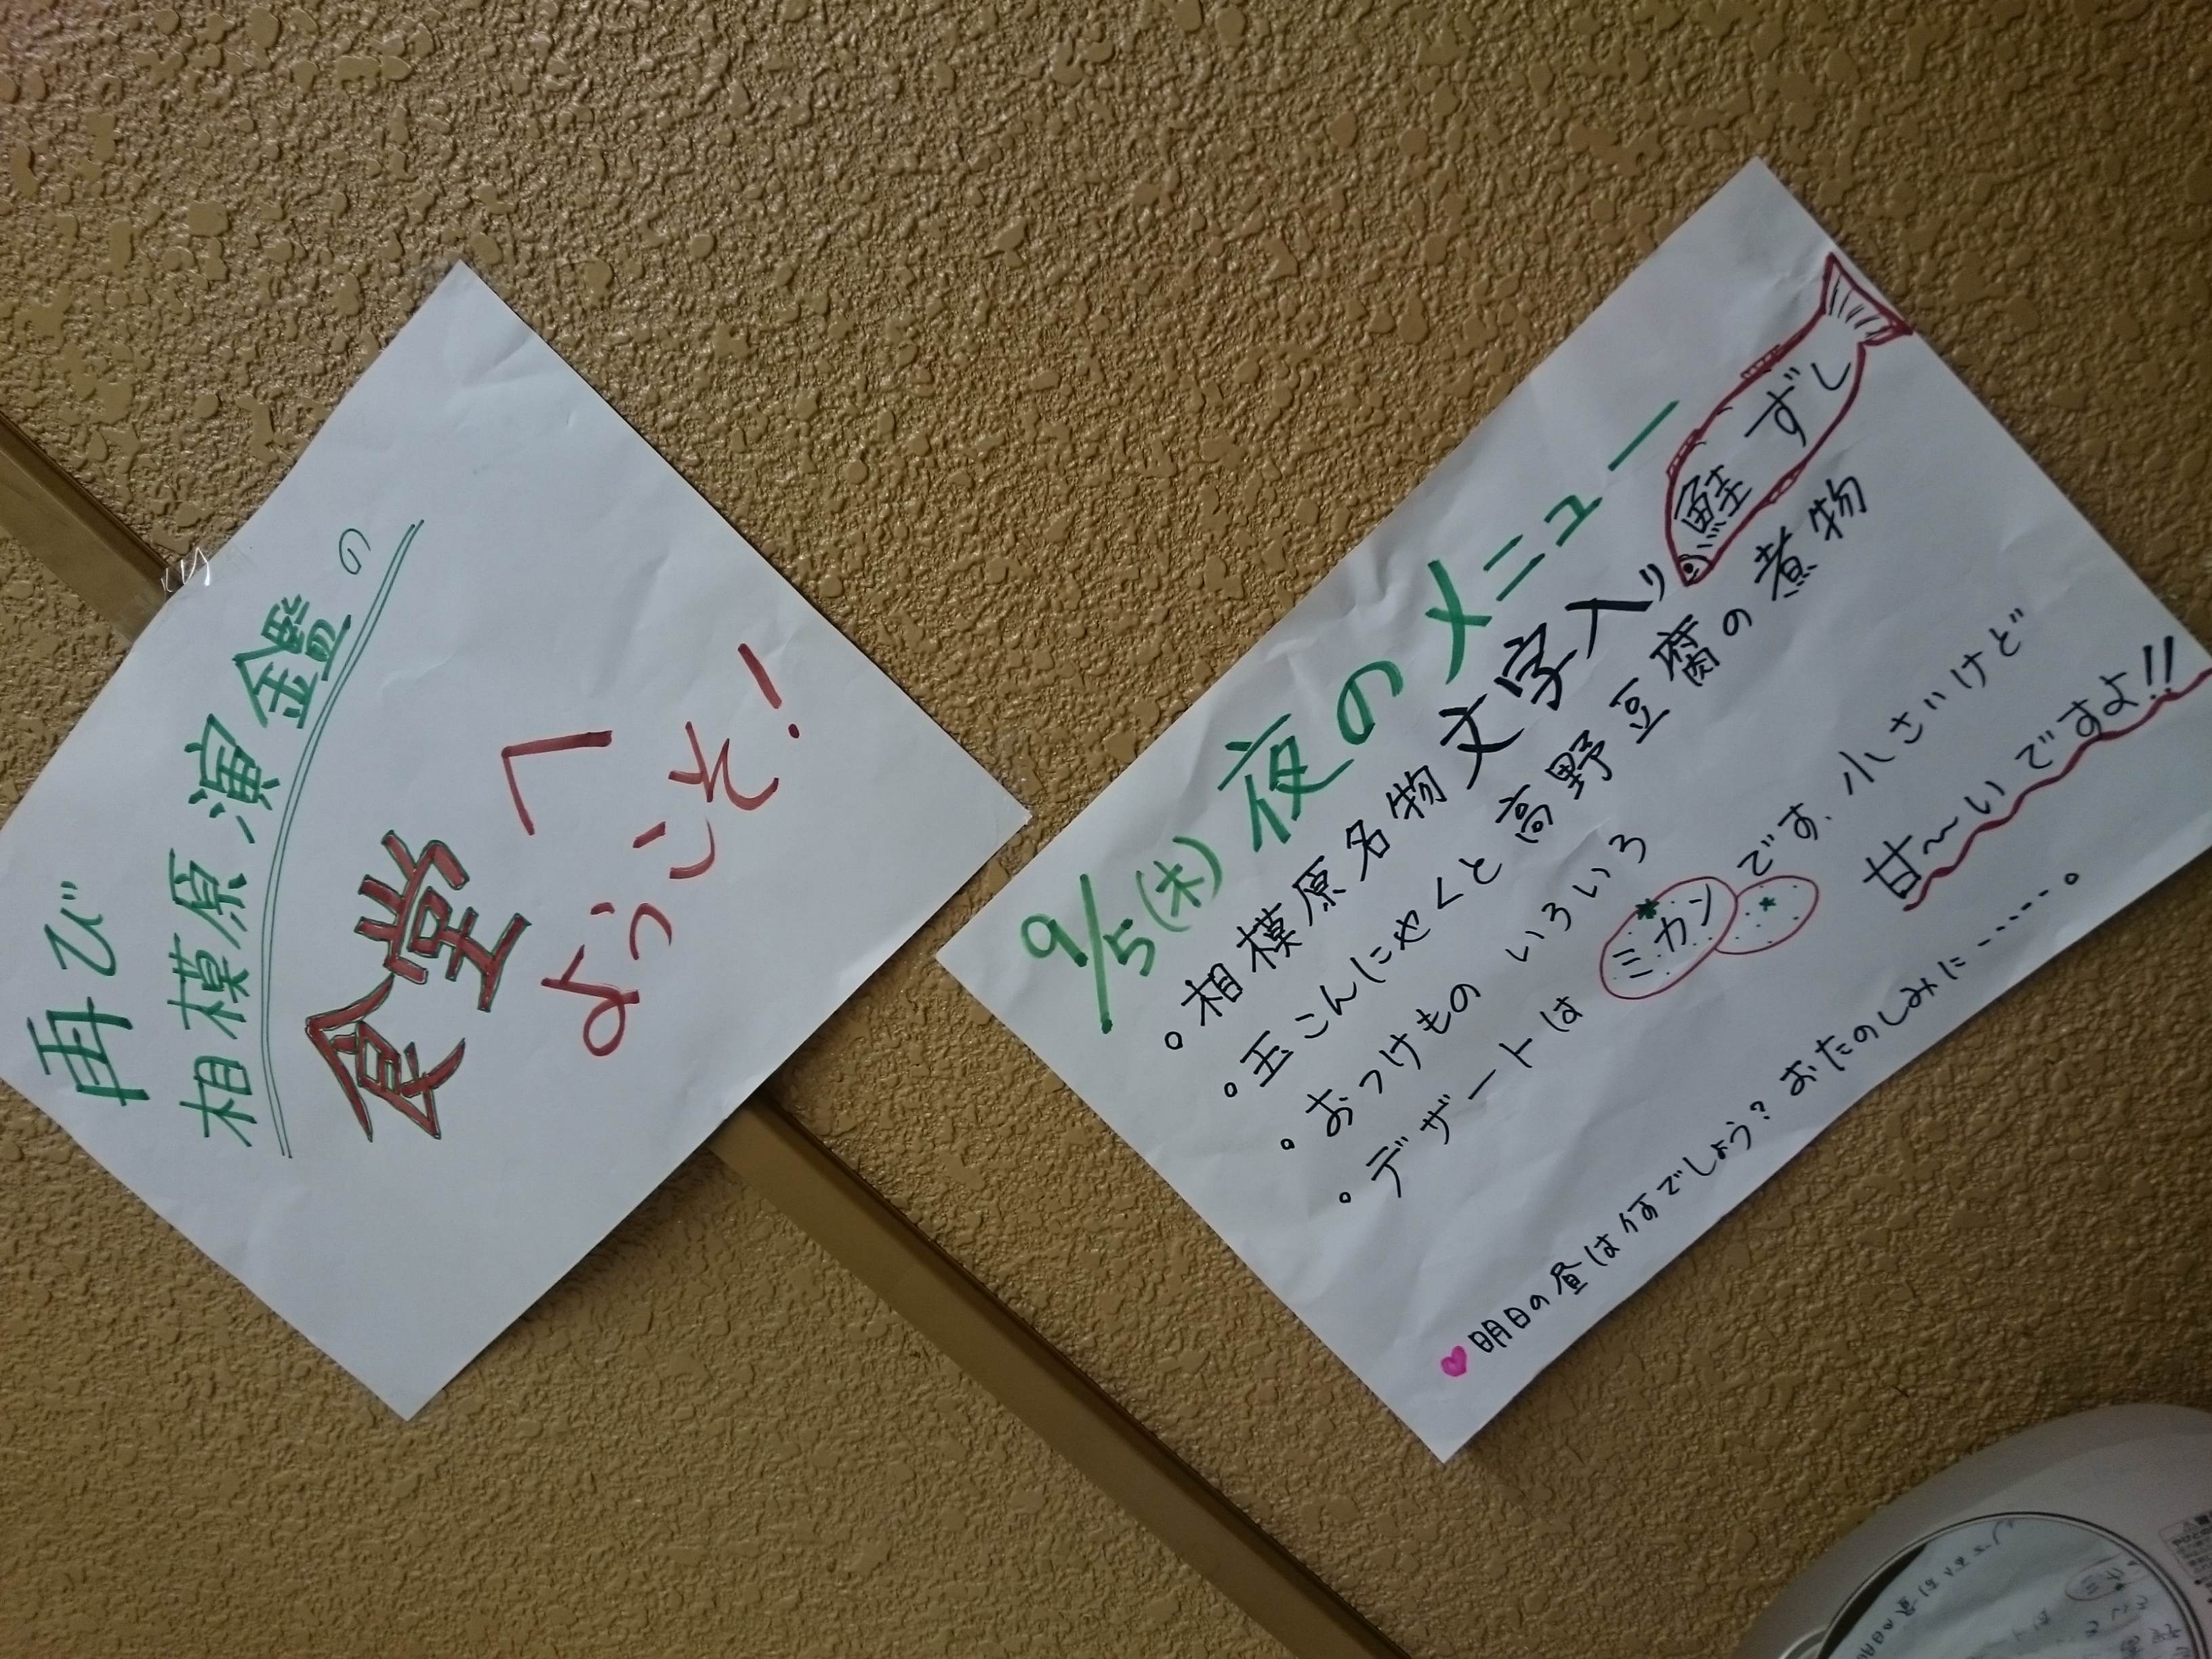 再び
相模原演鑑の
食堂へ
ようこそ!
9/5(木)夜のメニュー
。相模原名物文字入り鮭ずし
。玉こんにゃくと高野豆腐の煮物
。おつけもの いろいろ
。デザートは ミカン です。小さいけど
甘〜いですよ!!
♥明日の昼は何でしょう?おたのしみに……。